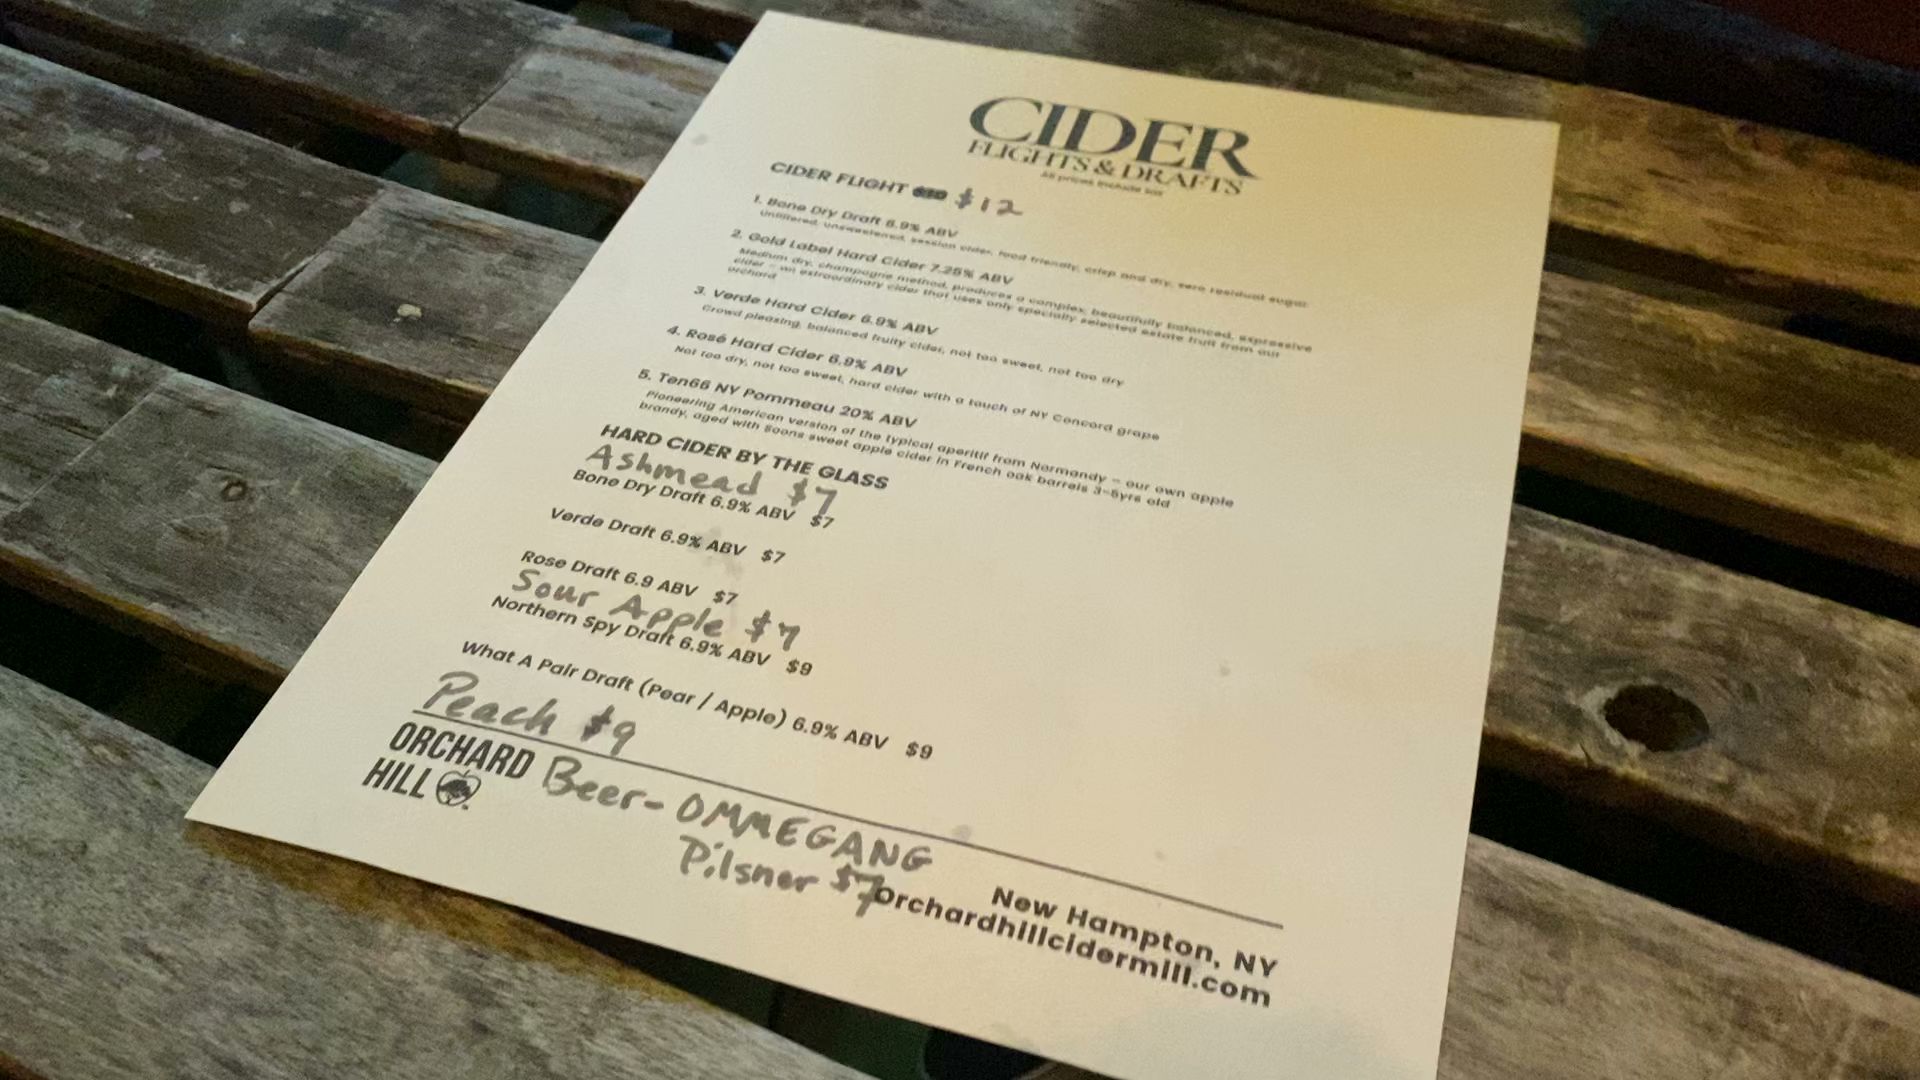 CIDER
FLIGHTS & DRAFTS
All prices include tax
CIDER FLIGHT $12
1. Bone Dry Draft 6.9% ABV
Unfiltered, unsweetened, session cider, food friendly, crisp and dry, zero residual sugar.
2. Gold Label Hard Cider 7.25% ABV
Medium dry, champagne method, produces a complex, beautifully balanced, expressive
cider – an extraordinary cider that uses only specially selected estate fruit from our
orchard
3. Verde Hard Cider 6.9% ABV
Crowd pleasing, balanced fruity cider, not too sweet, not too dry
4. Rosé Hard Cider 6.9% ABV
Not too dry, not too sweet, hard cider with a touch of NY Concord grape
5. Ten66 NY Pommeau 20% ABV
Pioneering American version of the typical aperitif from Normandy – our own apple
brandy, aged with Soons sweet apple cider in French oak barrels 3-5yrs old
HARD CIDER BY THE GLASS
Ashmead $7
Bone Dry Draft 6.9% ABV $7
Verde Draft 6.9% ABV $7
Rose Draft 6.9 ABV $7
Sour Apple $7
Northern Spy Draft 6.9% ABV $9
What A Pair Draft (Pear / Apple) 6.9% ABV $9
Peach $9
ORCHARD
HILL
Beer- OMMEGANG
Pilsner $7
New Hampton, NY
Orchardhillcidermill.com